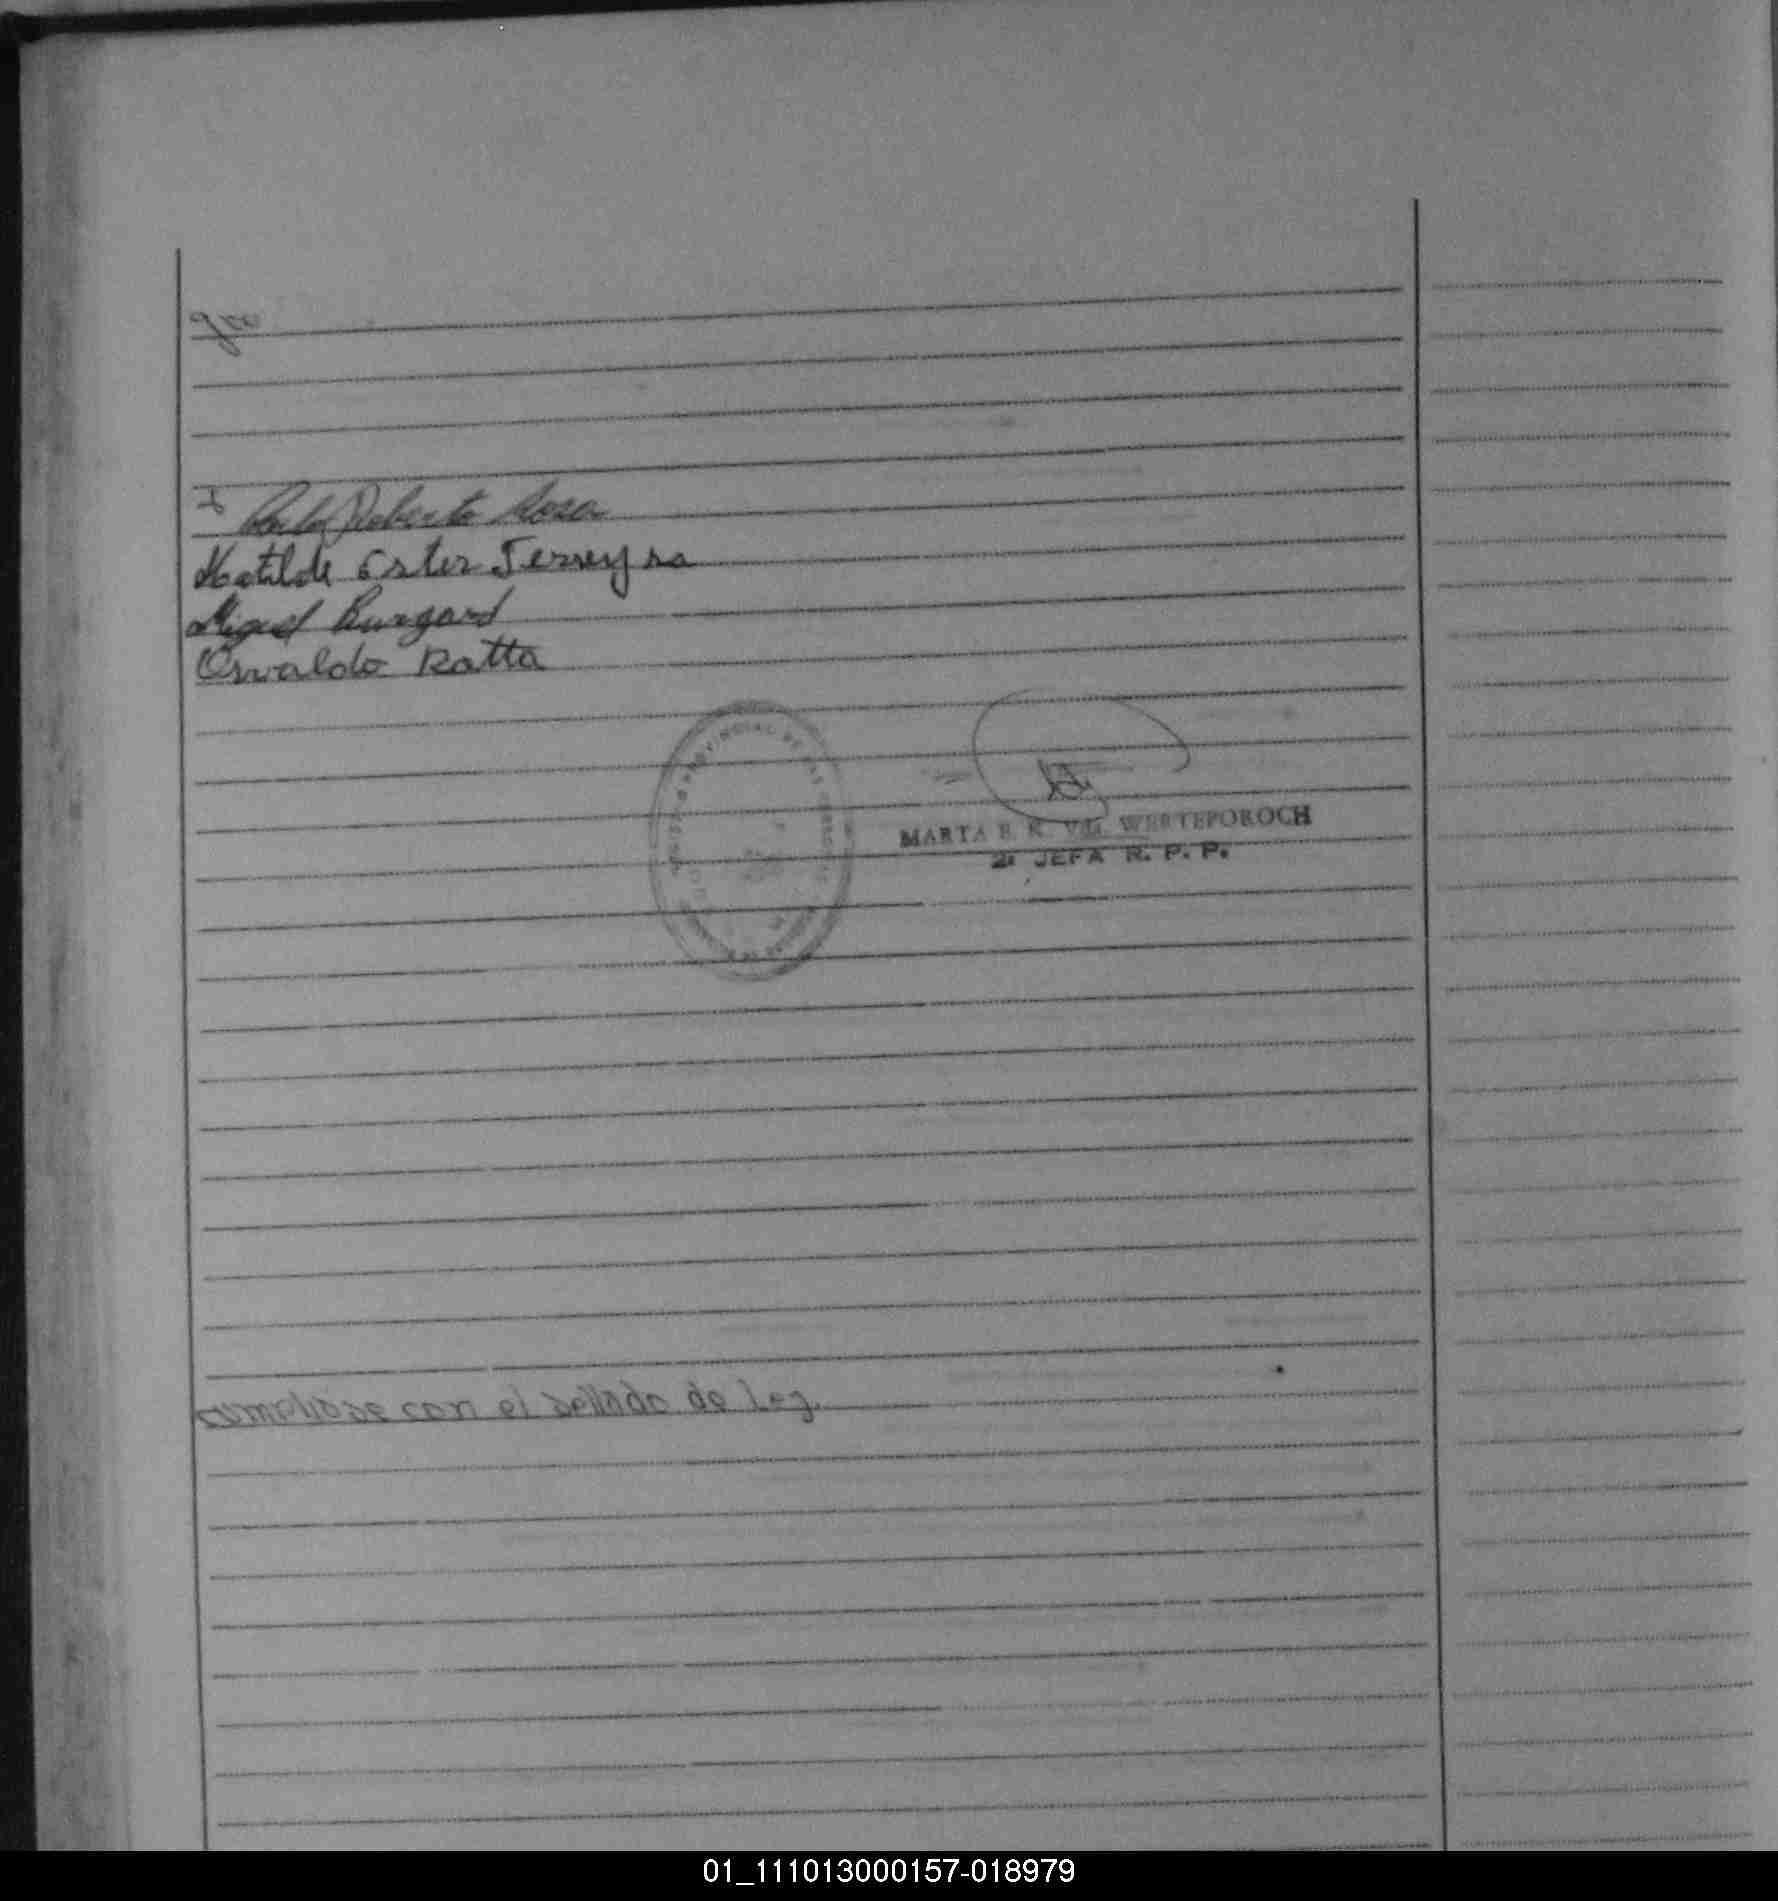 Roberto Rosa
Matilde Ester Ferreyra
Miguel Burgard
Osvaldo Ratta
PROVINCIAL DE LAS
MARTA E. R. Vda. WERTEPOROCH
2ª JEFA R. P. P.
cumpliose con el sellado de Ley.
01_111013000157-018979